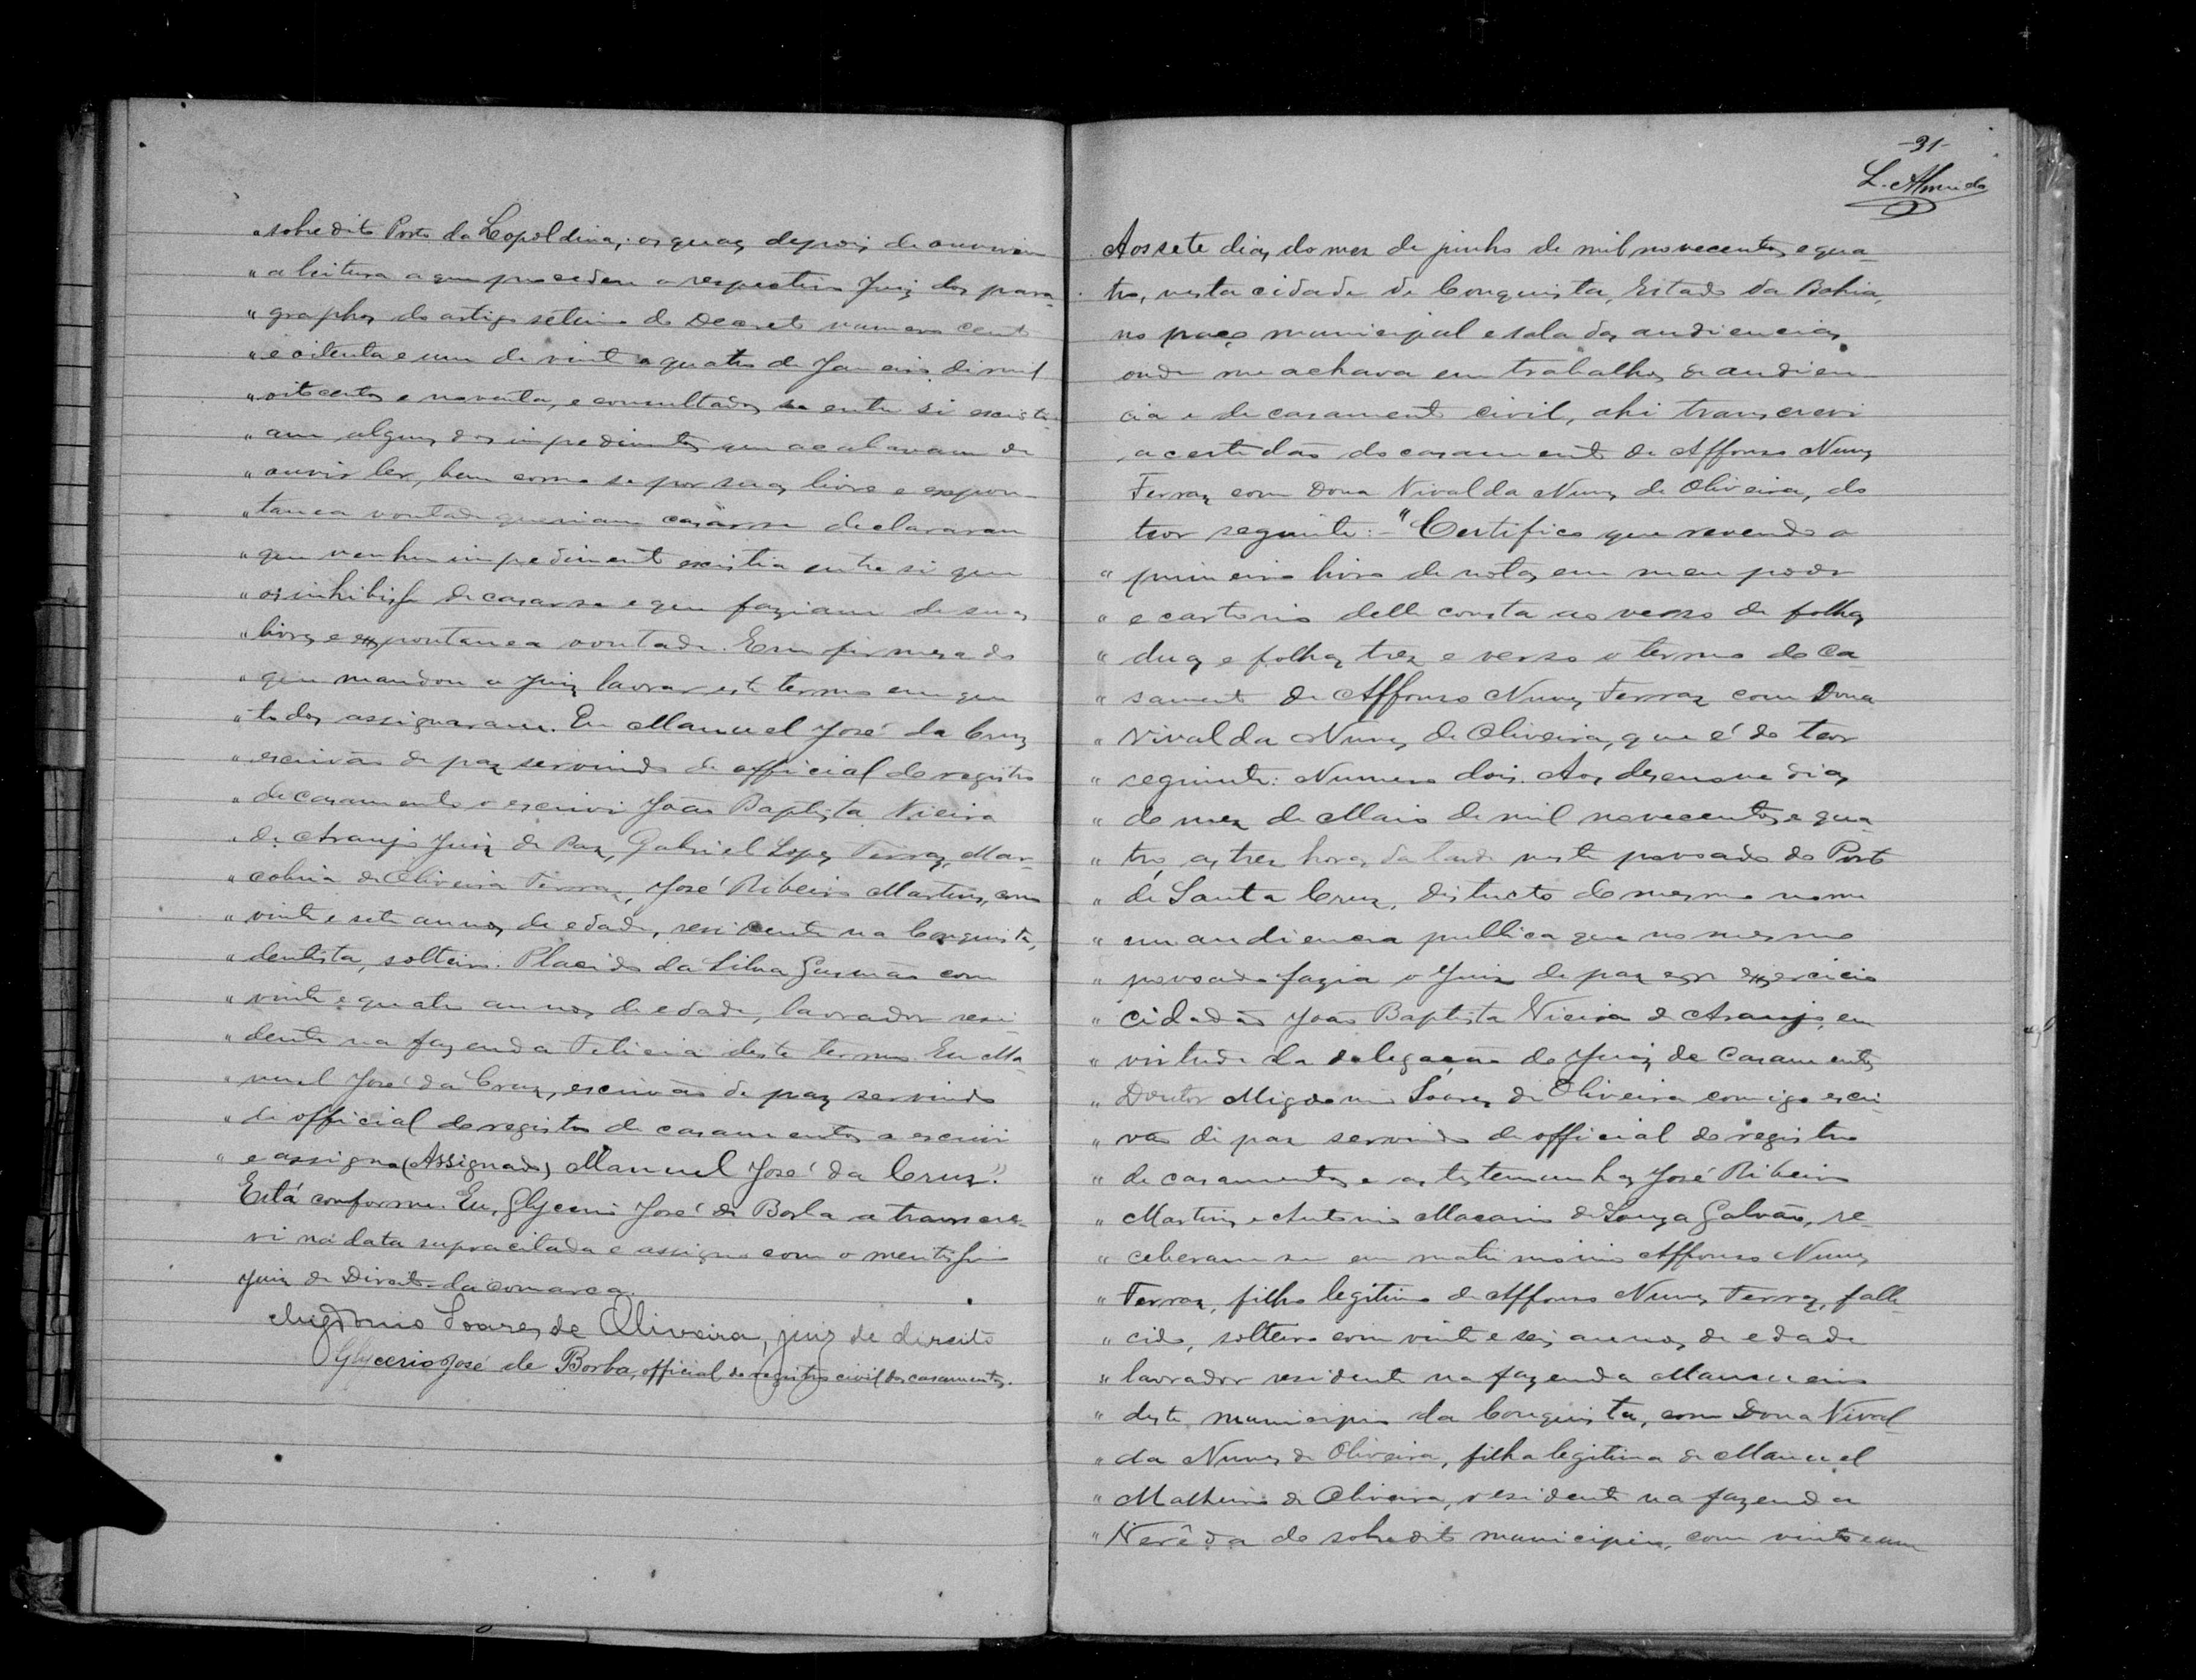 "sobredito Porto da Leopoldina; os quaes depois de ouvirem
"a leitura a que procedeu o respectivo Juiz dos para-
"graphos do artigo setimo do Decreto numero cento
"e oitenta e um de vinte e quatro de Janeiro de mil
"oitocentos e noventa, e consultados se entre si existi-
"am alguns dos impedimentos que acabavam de
"ouvir ler, bem como se por sua livre e expon-
"tanea vontade queriam casar-se declararam
"que nenhum impedimento existia entre si que
"os inhibisse de casar-se e que faziam de sua
"livre e expontanea vontade. Em firmesa do
"que mandou o Juiz lavrar este termo em que
"todos assignaram. Eu Manuel José da Cruz
"escrivão de paz servindo de official do registro
"de casamento o escrivi João Baptista Vieira
"de Araujo Juiz de Paz, Gabriel Lopes Ferraz, Mar-
"colina de Oliveira Ferraz, José Ribeiro Martins, com
"vinte e sete annos de edade, residente na Conquista,
"dentista, solteiro. Placido da Silva Gusmão com
"vinte e quatro annos de edade, lavrador resi-
"dente na fazenda Felicia deste termo. Eu Ma-
"nuel José da Cruz, escrivão de paz servindo
"de official do registro de casamentos o escrivi
"e assigno (Assignado) Manuel José da Cruz."
Está conforme. Eu, Glycerio José de Borba a transcre-
vi na data supracitada e assigno com o meritissimo
Juiz de Direito da comarca.
Migdonio Soares de Oliveira, juiz de direito
Glycerio José de Borba, official do registro civil dos casamentos.
-31-
L. Almeida
Aos sete dias do mez de junho de mil novecentos e qua-
tro, nesta cidade de Conquista, Estado da Bahia,
no paço municipal e sala das audiencias
onde me achava em trabalhos de audien-
cia e de casamento civil, ahi transcrevi
a certidão do casamento de Affonso Nunes
Ferraz com Dona Nivalda Nunes de Oliveira, do
teor seguinte: - "Certifico que revendo o
"primeiro livro de notas em meu poder
"e cartorio delle consta ao verso de folhas
"duas e folhas trez e verso o termo do ca
"samento de Affonso Nunes Ferraz com Dona
"Nivalda Nunes de Oliveira, que é do teor
"seguinte: Numero dois. Aos desenove dias
"do mez de Maio de mil novecentos e qua-
"tro, as trez horas da tarde neste povoado do Porto
"de Santa Cruz, districto do mesmo nome
"em audiencia publica que no mesmo
"povoado fazia o Juiz de paz em exercicio
"cidadão João Baptista Vieira de Araujo, em
"virtude da delegação do Juiz de Casamentos
"Doutor Migdonio Soares de Oliveira comigo escri-
"vão de paz servindo de official do registro
"de casamentos e as testemunhas José Ribeiro
"Martins e Antonio Macario de Souza Galvão, re-
"ceberam-se em matrimonio Affonso Nunes
"Ferraz, filho legitimo de Affonso Nunes Ferraz, falle
"cido, solteiro com vinte e seis annos de edade
"lavrador residente na fazenda
"deste municipio da Conquista, com Dona Nival-
"da Nunes de Oliveira, filha legitima de Manuel
"Matheus de Oliveira, residente na fazenda
"Verêda do sobredito municipio, com vinte e um